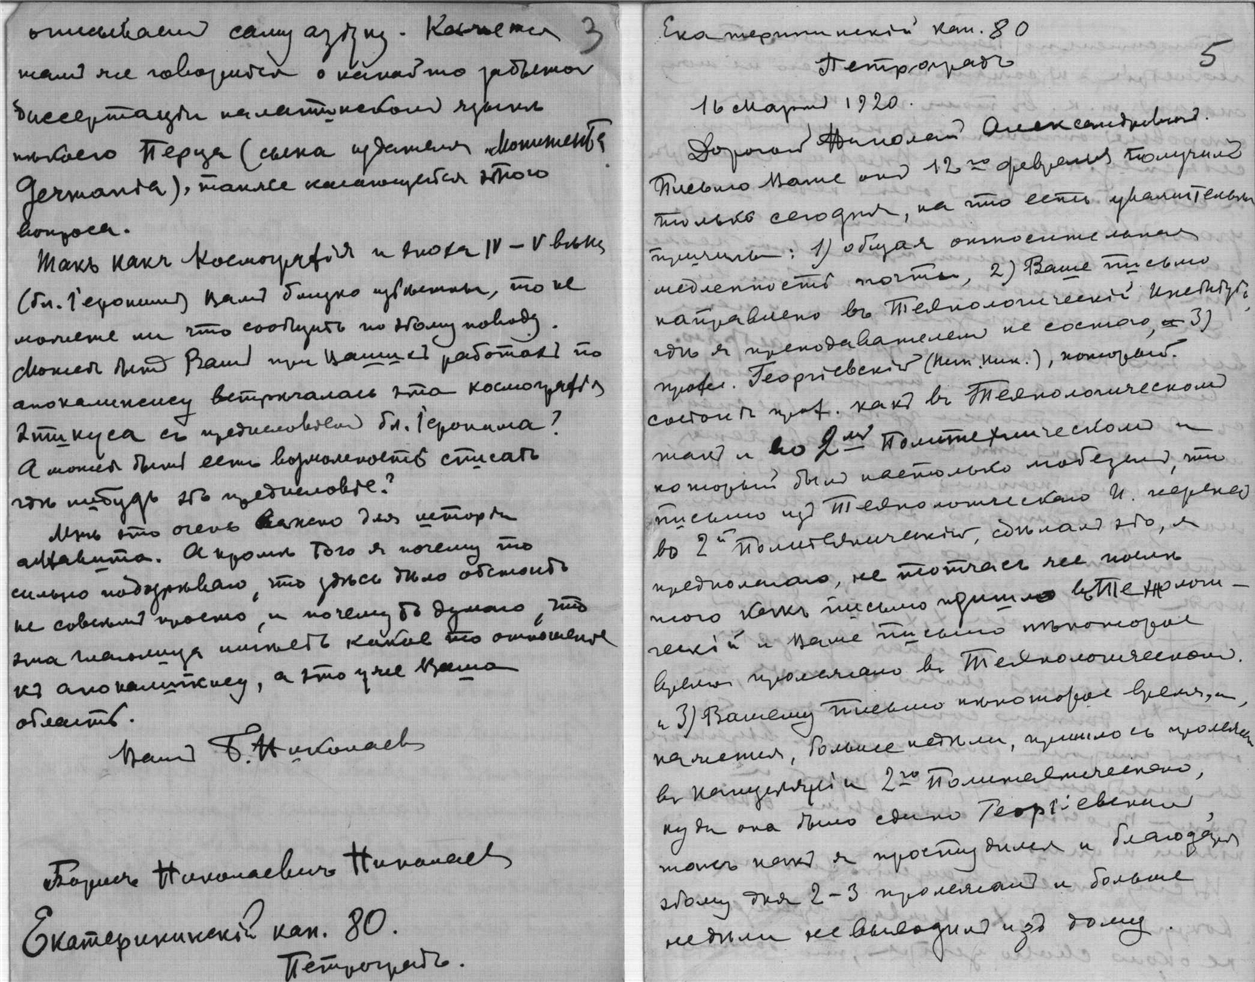 описываетъ саму азбуку. Кажется 3
тамъ же говорится о какой то
диссертаціи на латинскомъ языкѣ
нѣкоего Перца (сына издателя Monumenta
Germania), также касающейся этого
вопроса.
Такъ какъ Космографія и эпоха IV – V вѣка
(бл. Іеронимъ) Вамъ близко извѣстны, то не
можете ли что сообщить по этому поводу.
Можетъ быть Вамъ при Вашихъ работахъ по
апокалипсису встрѣчалась эта космографія
Этикуса съ предисловіемъ бл. Іеронима?
А можетъ быть есть возможность списать
гдѣ нибудь это предисловіе?
Мнѣ это очень важно для исторіи
алфавита. А кромѣ того я почему то
сильно подозрѣваю, что здѣсь дѣло обстоитъ
не совсѣмъ просто, и почему то думаю, что
эта имѣетъ какое то отношеніе
къ апокалипсису, а это уже Ваша
область.
Вашъ Б. Николаевъ
Борисъ Николаевичъ Николаевъ
Екатерининскій кан. 80.
Петроградъ.
Екатерининскій кан. 80
5
Петроградъ
16 марта 1920.
Дорогой Николай Александровичъ.
Письмо Ваше отъ 12го февраля получилъ
только сегодня, на что есть уважительныя
причины: 1) общая относительная
медленность почты, 2) Ваше письмо
направлено въ Технологическій Институтъ,
гдѣ я преподавателемъ не состою, 3)
проф. Георгіевскій (Ник. Ник.), который
состоитъ проф. какъ въ Технологическомъ
такъ и во 2мъ Политехническомъ и
который былъ настолько любезенъ, что
письмо изъ Технологическаго И. перенесъ
во 2й Политехническій, сдѣлалъ это, я
предполагаю, не тотчасъ же послѣ
того какъ письмо пришло въ Технологи-
ческій и Ваше письмо нѣкоторое
время пролежало въ Технологическомъ.
и 3) Вашему письмо нѣкоторое время, и,
кажется, больше недѣли, пришлось пролежать
въ канцеляріи 2го Политехническаго,
куда оно было сдано Георгіевскимъ,
такъ какъ я простудился и благодаря
этому дня 2–3 пролежалъ и больше
недѣли не выходилъ изъ дому.